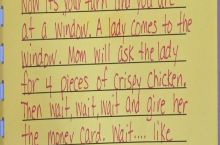 Now its your turn and you are
at a window. A lady comes to the
window. Mom will ask the lady
for 4 pieces of crispy chicken.
Then wait, wait, wait and give her
the money card. Wait.... like